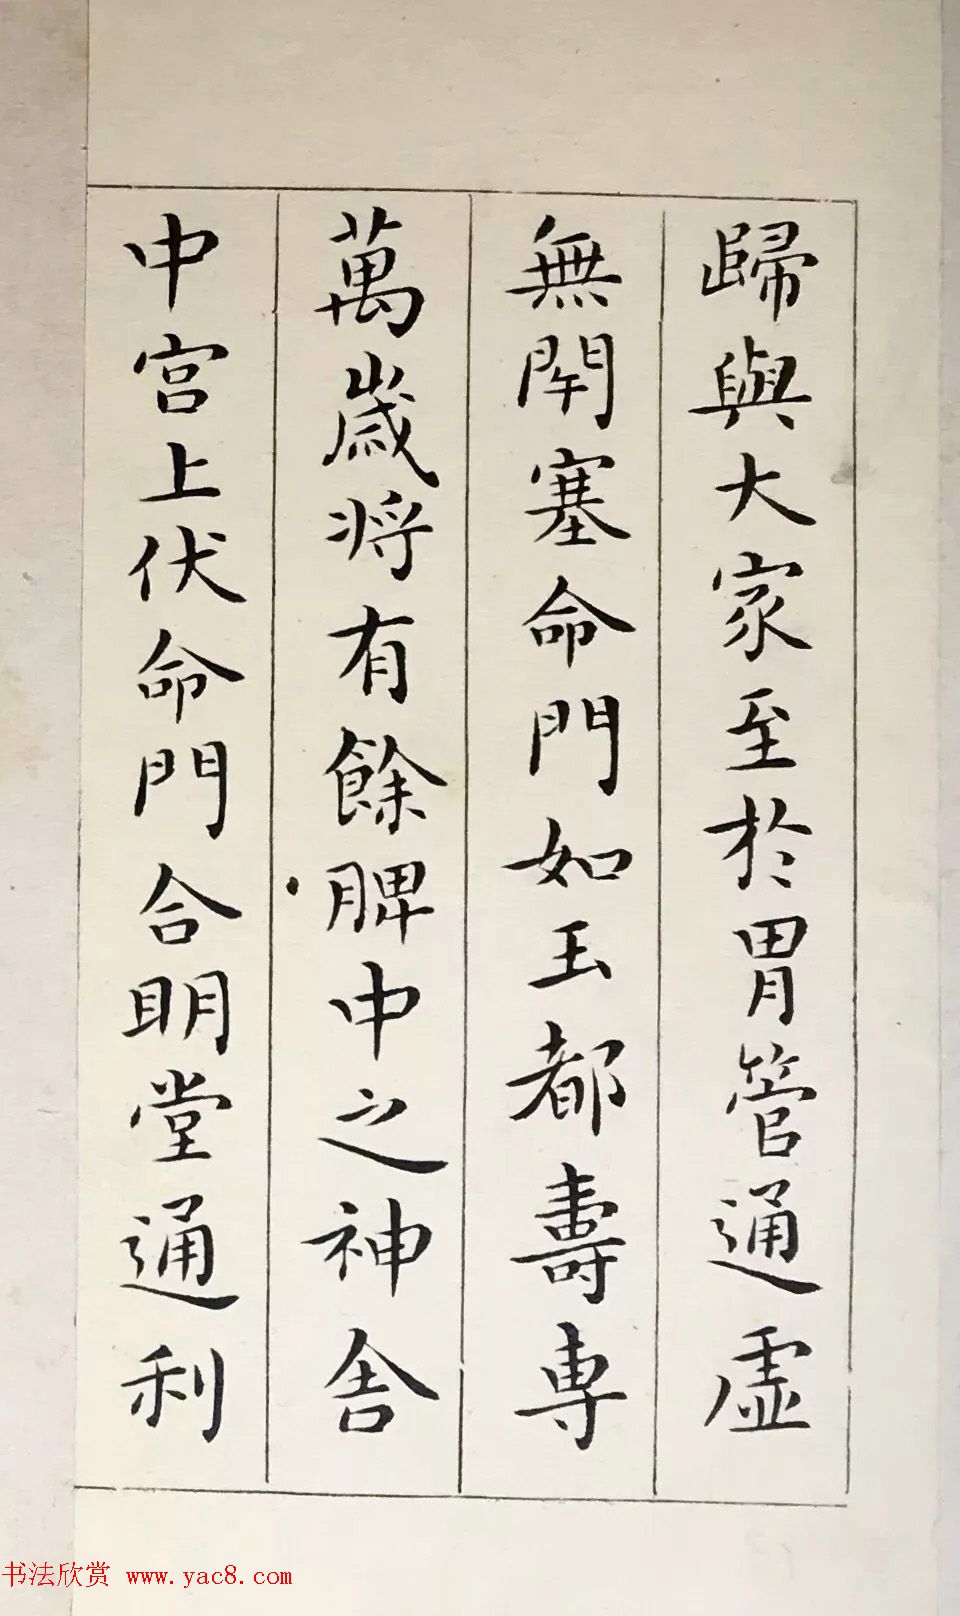 歸與大家至於胃管通虛
無閇塞命門如玉都壽專
萬歲將有餘脾中之神舍
中宮上伏命門合明堂通利
书法欣赏 www.yac8.com